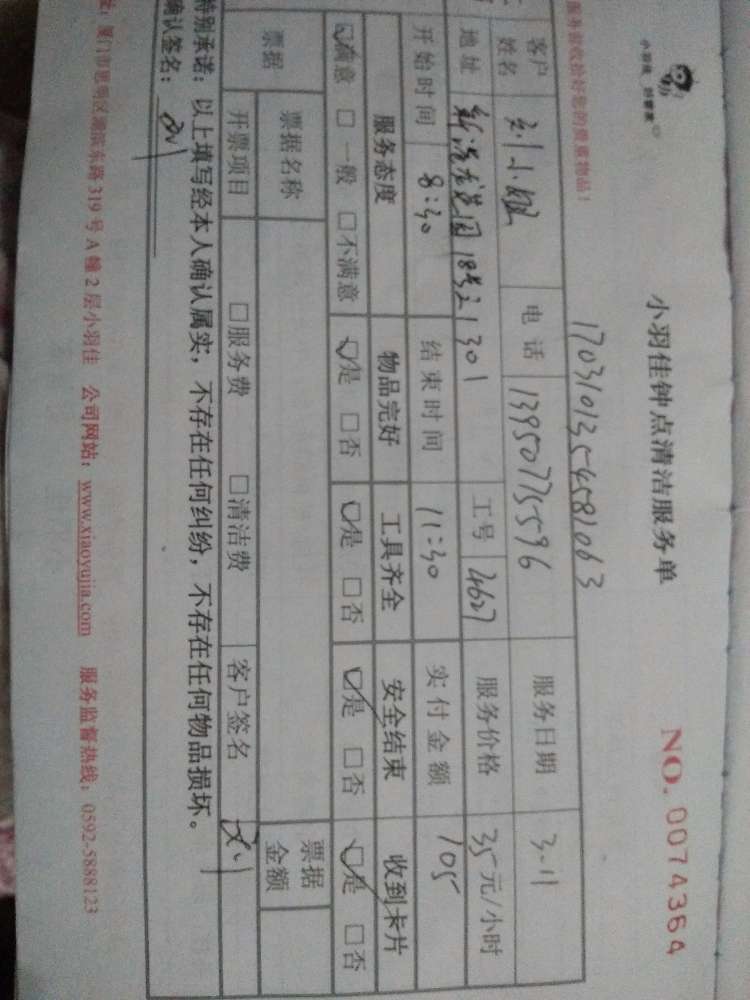 小羽佳 好管家
小羽佳钟点清洁服务单
NO. 0074364
服务前收拾好您的贵重物品！
170310135454581063
客户姓名 刘小姐 电话 13950775596 服务日期 3-11
地址 18号之1301 工号 4627 服务价格 35元/小时
开始时间 8:30 结束时间 11:30 实付金额 105
服务态度 物品完好 工具齐全 安全结束 收到卡片
☑满意 □一般 □不满意 ☑是 □否 ☑是 □否 ☑是 □否 ☑是 □否
票据 票据名称 票据金额
开票项目 □服务费 □清洁费 客户签名
特别承诺：以上填写经本人确认属实，不存在任何纠纷，不存在任何物品损坏。
确认签名：
址：厦门市思明区湖滨东路319号A幢2层小羽佳 公司网站：www.xiaoyujia.com 服务监督热线：0592-5888123